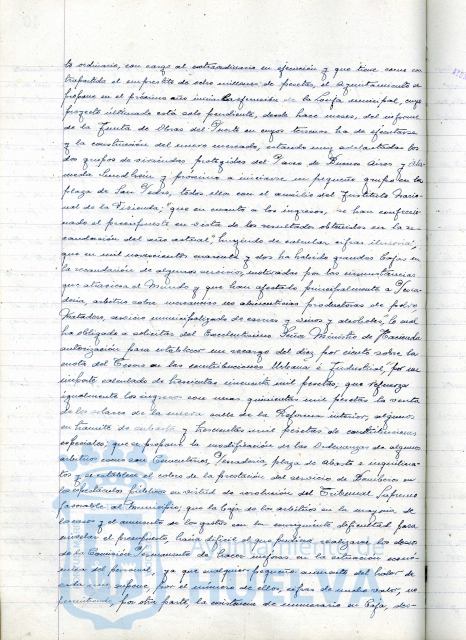 to ordinario, con cargo al extraordinario en ejecución y que tiene como con
trapartida el empréstito de ocho millones de pesetas, el Ayuntamiento se
propone en el próximo año iniciar la de la Lonja municipal, cuyo
proyecto ultimado está solo pendiente, desde hace meses, del informe
de la Junta de Obras del Puerto en cuyos terrenos ha de efectuarse
y la construcción del nuevo mercado, estando muy adelantados los
dos grupos de viviendas protegidas del Paseo de Buenos Aires y Ala
meda Sundheim y próximo a iniciarse un pequeño grupo en la
plaza de San Pedro, todos ellos con el auxilio del Instituto Nacio
nal de la Vivienda; "que en cuanto a los ingresos, se han confeccio
nado el presupuesto en vista de los resultados obtenidos en la re
caudación del año actual," huyendo de calcular cifras ilusorias,
que en mil novecientos cuarenta y dos ha habido grandes bajas en
la recaudación de algunos servicios, motivadas por las circunstancias
que atraviesa el Mundo y que han afectado principalmente a Pesca
dería, arbitrio sobre mercancías no alimenticias productoras de polvo,
Matadero, servicio municipalizado de carnes y vinos y alcoholes," lo cual
ha obligado a solicitar del Excelentísimo Señor Ministro de Hacienda
autorización para establecer un recargo del diez por ciento sobre la
cuota del Tesoro en las contribuciones Urbana e Industrial," por un
importe calculado de trescientas cincuenta mil pesetas, que refuerza
igualmente los ingresos con unas quinientas mil pesetas la venta
de los solares de la nueva calle de la Reforma interior, algunos
en trámite de subasta y trescientas mil pesetas de contribuciones
especiales; que se propone la modificación de las Ordenanzas de algunos
arbitrios como son Cementerios, Pescadería, plaza de Abasto e inquilina
tos y se establece el cobro de la prestación del servicio de Bomberos en
los espectáculos públicos en virtud de resolución del Tribunal Supremo
favorable al Municipio; que la baja de los arbitrios en la mayoría de
los casos y el aumento de los gastos con la consiguiente dificultad para
nivelar el presupuesto, hacía difícil el que pudiera realizarse los deseos
de la Comisión Permanente de hacer mejoras en la situación econó
mica del personal, ya que cualquier pequeño aumento del haber de
cada uno supone, por el número de ellos, cifras de mucho valor, no
permitiendo, por otra parte, la existencia de numerario en Caja, des-
Ayuntamiento de
HUELVA